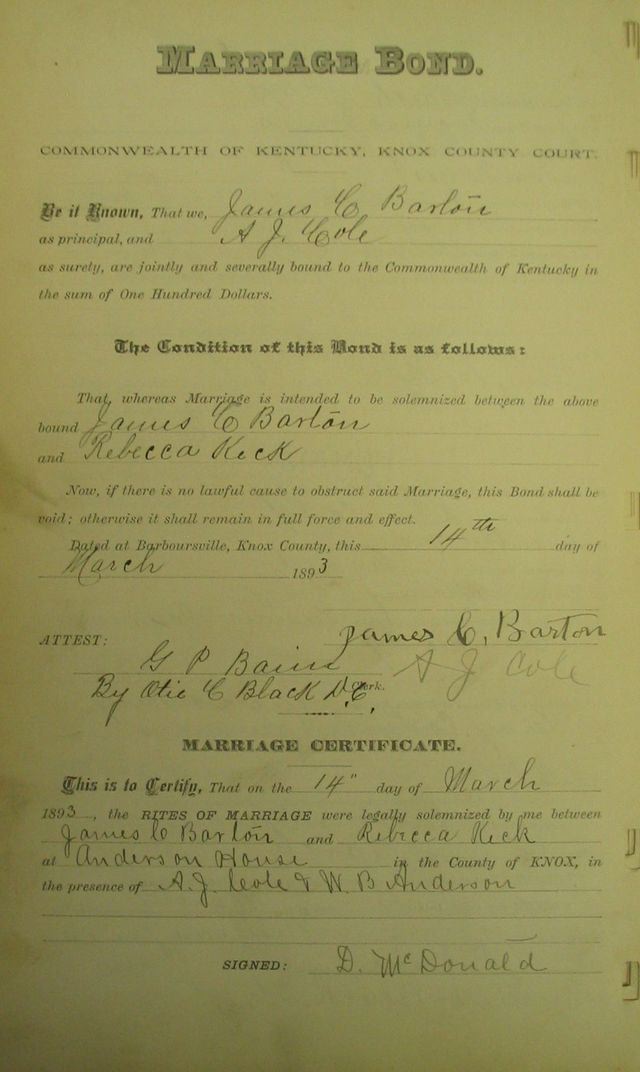 MARRIAGE BOND.
COMMONWEALTH OF KENTUCKY, KNOX COUNTY COURT.
Be it Known, That we, James C Barton
as principal, and A J. Cole
as surety, are jointly and severally bound to the Commonwealth of Kentucky in
the sum of One Hundred Dollars.
The Condition of this Bond is as follows:
That, whereas Marriage is intended to be solemnized between the above
bound James C Barton
and Rebecca Keck
Now, if there is no lawful cause to obstruct said Marriage, this Bond shall be
void; otherwise it shall remain in full force and effect.
Dated at Barboursville, Knox County, this 14th day of
March 1893
James C. Barton
ATTEST:
G P Bain A J Cole
Clerk.
By Otic C Black D.C.
MARRIAGE CERTIFICATE.
This is to Certify, That on the 14" day of March
1893, the RITES OF MARRIAGE were legally solemnized by me between
James C Barton and Rebecca Keck
at Anderson House in the County of KNOX, in
the presence of A.J. Cole & W. B Anderson
SIGNED: D. McDonald